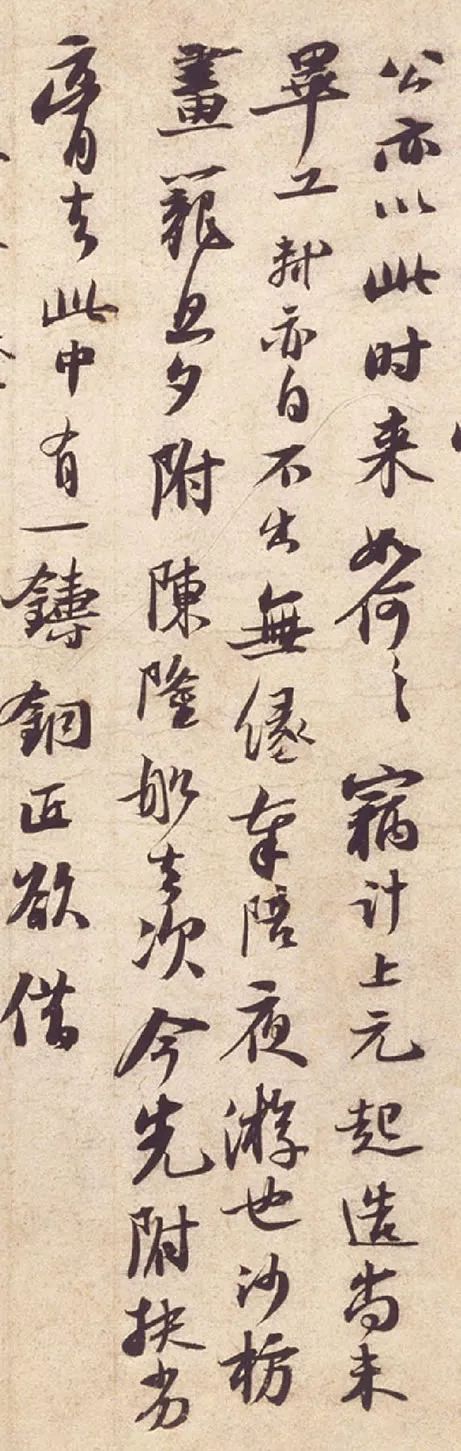 公亦以此时来如何々窃计上元起造尚未
畢工軾亦自不出無缘奉陪夜游也沙枋
畫籠旦夕附陳隆船去次今先附扶劣
膏去此中有一鑄銅匠欲借